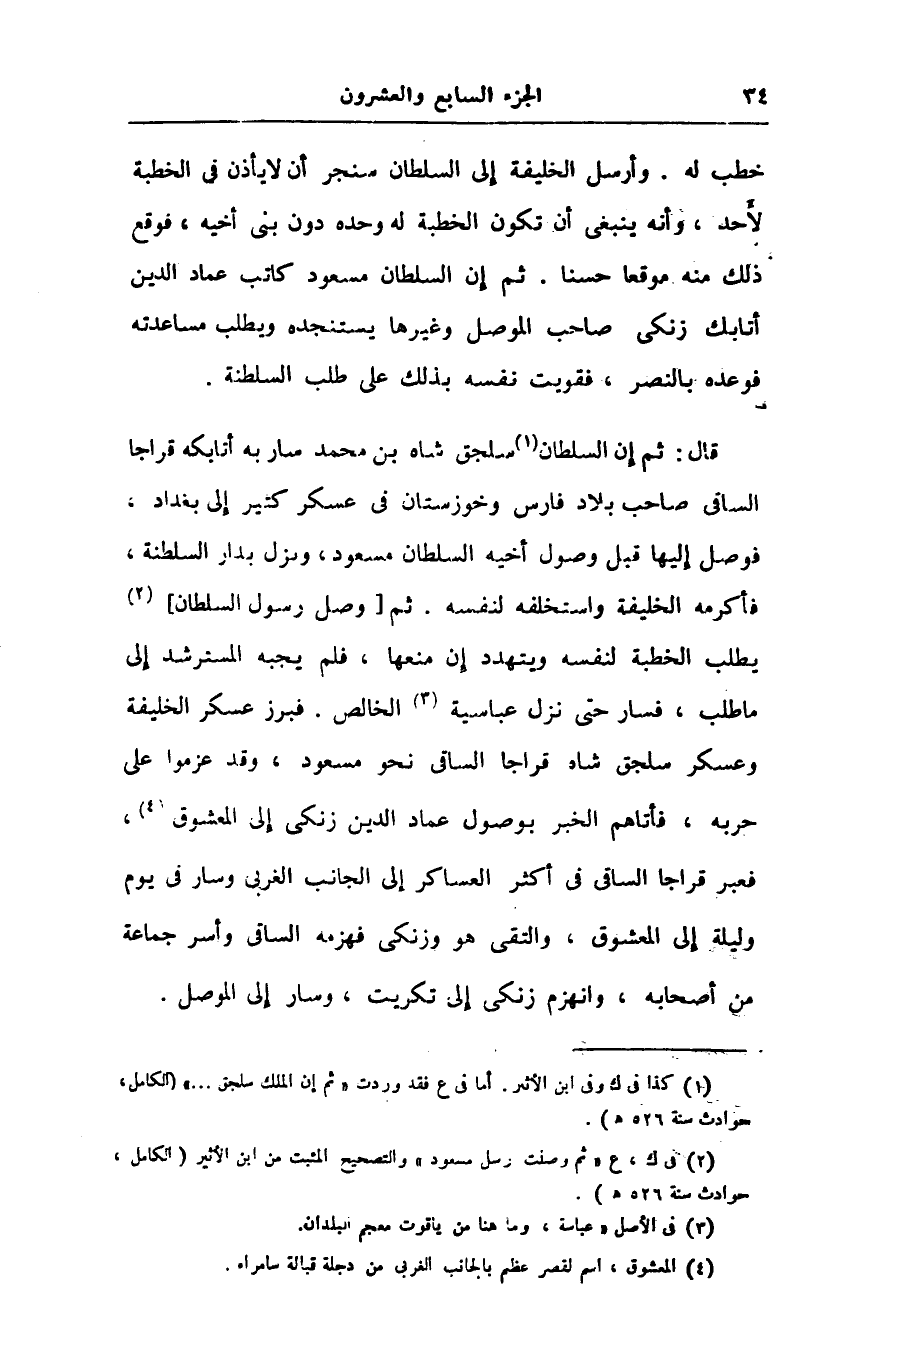 ٣٤ الجزء السابع والعشرون
خطب له . وأرسل الخليفة إلى السلطان سنجر أن لا يأذن فى الخطبة
لأحد ، وأنه ينبغى أن تكون الخطبة له وحده دون بنى أخيه ، فوقع
ذلك منه موقعا حسنا . ثم إن السلطان مسعود كاتب عماد الدين
أتابك زنكى صاحب الموصل وغيرها يستنجده ويطلب مساعدته
فوعده بالنصر ، فقويت نفسه بذلك على طلب السلطنة .
قال : ثم إن السلطان(١) سلجق شاه بن محمد سار به أتابكه قراجا
الساقى صاحب بلاد فارس وخوزستان فى عسكر كثير إلى بغداد ،
فوصل إليها قبل وصول أخيه السلطان مسعود ، ونزل بدار السلطنة ،
فأكرمه الخليفة واستخلفه لنفسه . ثم [ وصل رسول السلطان] (٢)
يطلب الخطبة لنفسه ويتهدد إن منعها ، فلم يجبه المسترشد إلى
ماطلب ، فسار حتى نزل عباسية (٣) الخالص . فبرز عسكر الخليفة
وعسكر سلجق شاه قراجا الساقى نحو مسعود ، وقد عزموا على
حربه ، فأتاهم الخبر بوصول عماد الدين زنكى إلى المعشوق (٤) ،
فعبر قراجا الساقى فى أكثر العساكر إلى الجانب الغربى وسار فى يوم
وليلة إلى المعشوق ، والتقى هو وزنكى فهزمه الساقى وأسر جماعة
من أصحابه ، وانهزم زنكى إلى تكريت ، وسار إلى الموصل .
(١) كذا فى ك وفى ابن الأثير . أما فى ع فقد وردت « ثم إن الملك سلجق ...» (الكامل ،
حوادث سنة ٥٢٦ ه ) .
(٢) فى ك ، ع « ثم وصلت رسل مسعود » والتصحيح المثبت من ابن الأثير ( الكامل ،
حوادث سنة ٥٢٦ ه ) .
(٣) فى الأصل « عباسة ، وما هنا من ياقوت معجم البلدان.
(٤) المعشوق ، اسم لقصر عظم بالجانب الغربى من دجلة قبالة سامراء .